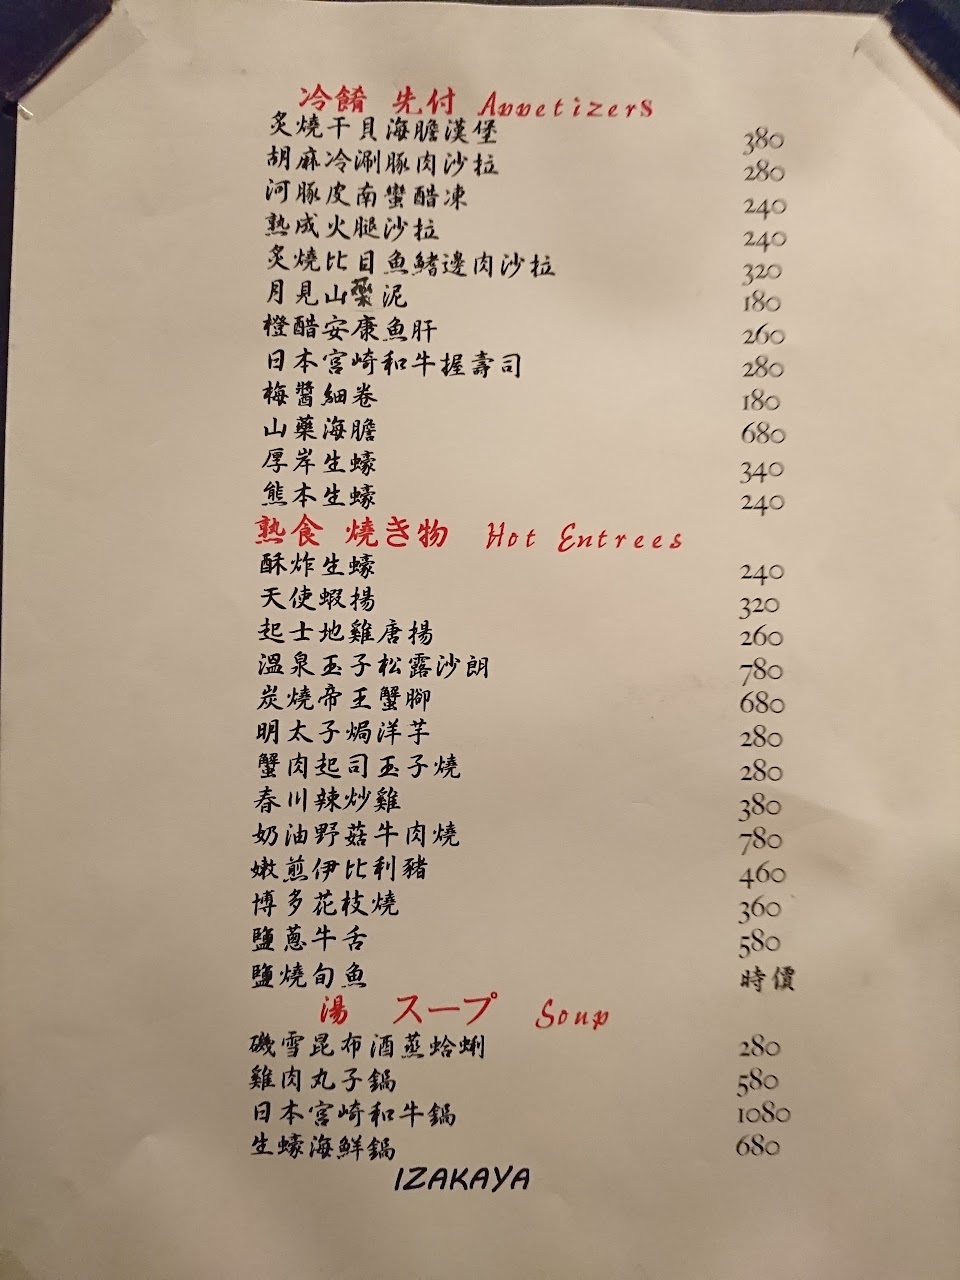 冷餚 先付 Appetizers
炙燒干貝海膽漢堡 380
胡麻冷涮豚肉沙拉 280
河豚皮南蠻醋凍 240
熟成火腿沙拉 240
炙燒比目魚鰭邊肉沙拉 320
月見山藥泥 180
橙醋安康魚肝 260
日本宮崎和牛握壽司 280
梅醬細卷 180
山藥海膽 680
厚岸生蠔 340
熊本生蠔 240
熟食 燒き物 Hot Entrees
酥炸生蠔 240
天使蝦揚 320
起士地雞唐揚 260
溫泉玉子松露沙朗 780
炭燒帝王蟹腳 680
明太子焗洋芋 280
蟹肉起司玉子燒 280
春川辣炒雞 380
奶油野菇牛肉燒 780
嫩煎伊比利豬 460
博多花枝燒 360
鹽蔥牛舌 580
鹽燒旬魚 時價
湯 スープ Soup
磯雪昆布酒蒸蛤蜊 280
雞肉丸子鍋 580
日本宮崎和牛鍋 1080
生蠔海鮮鍋 680
IZAKAYA